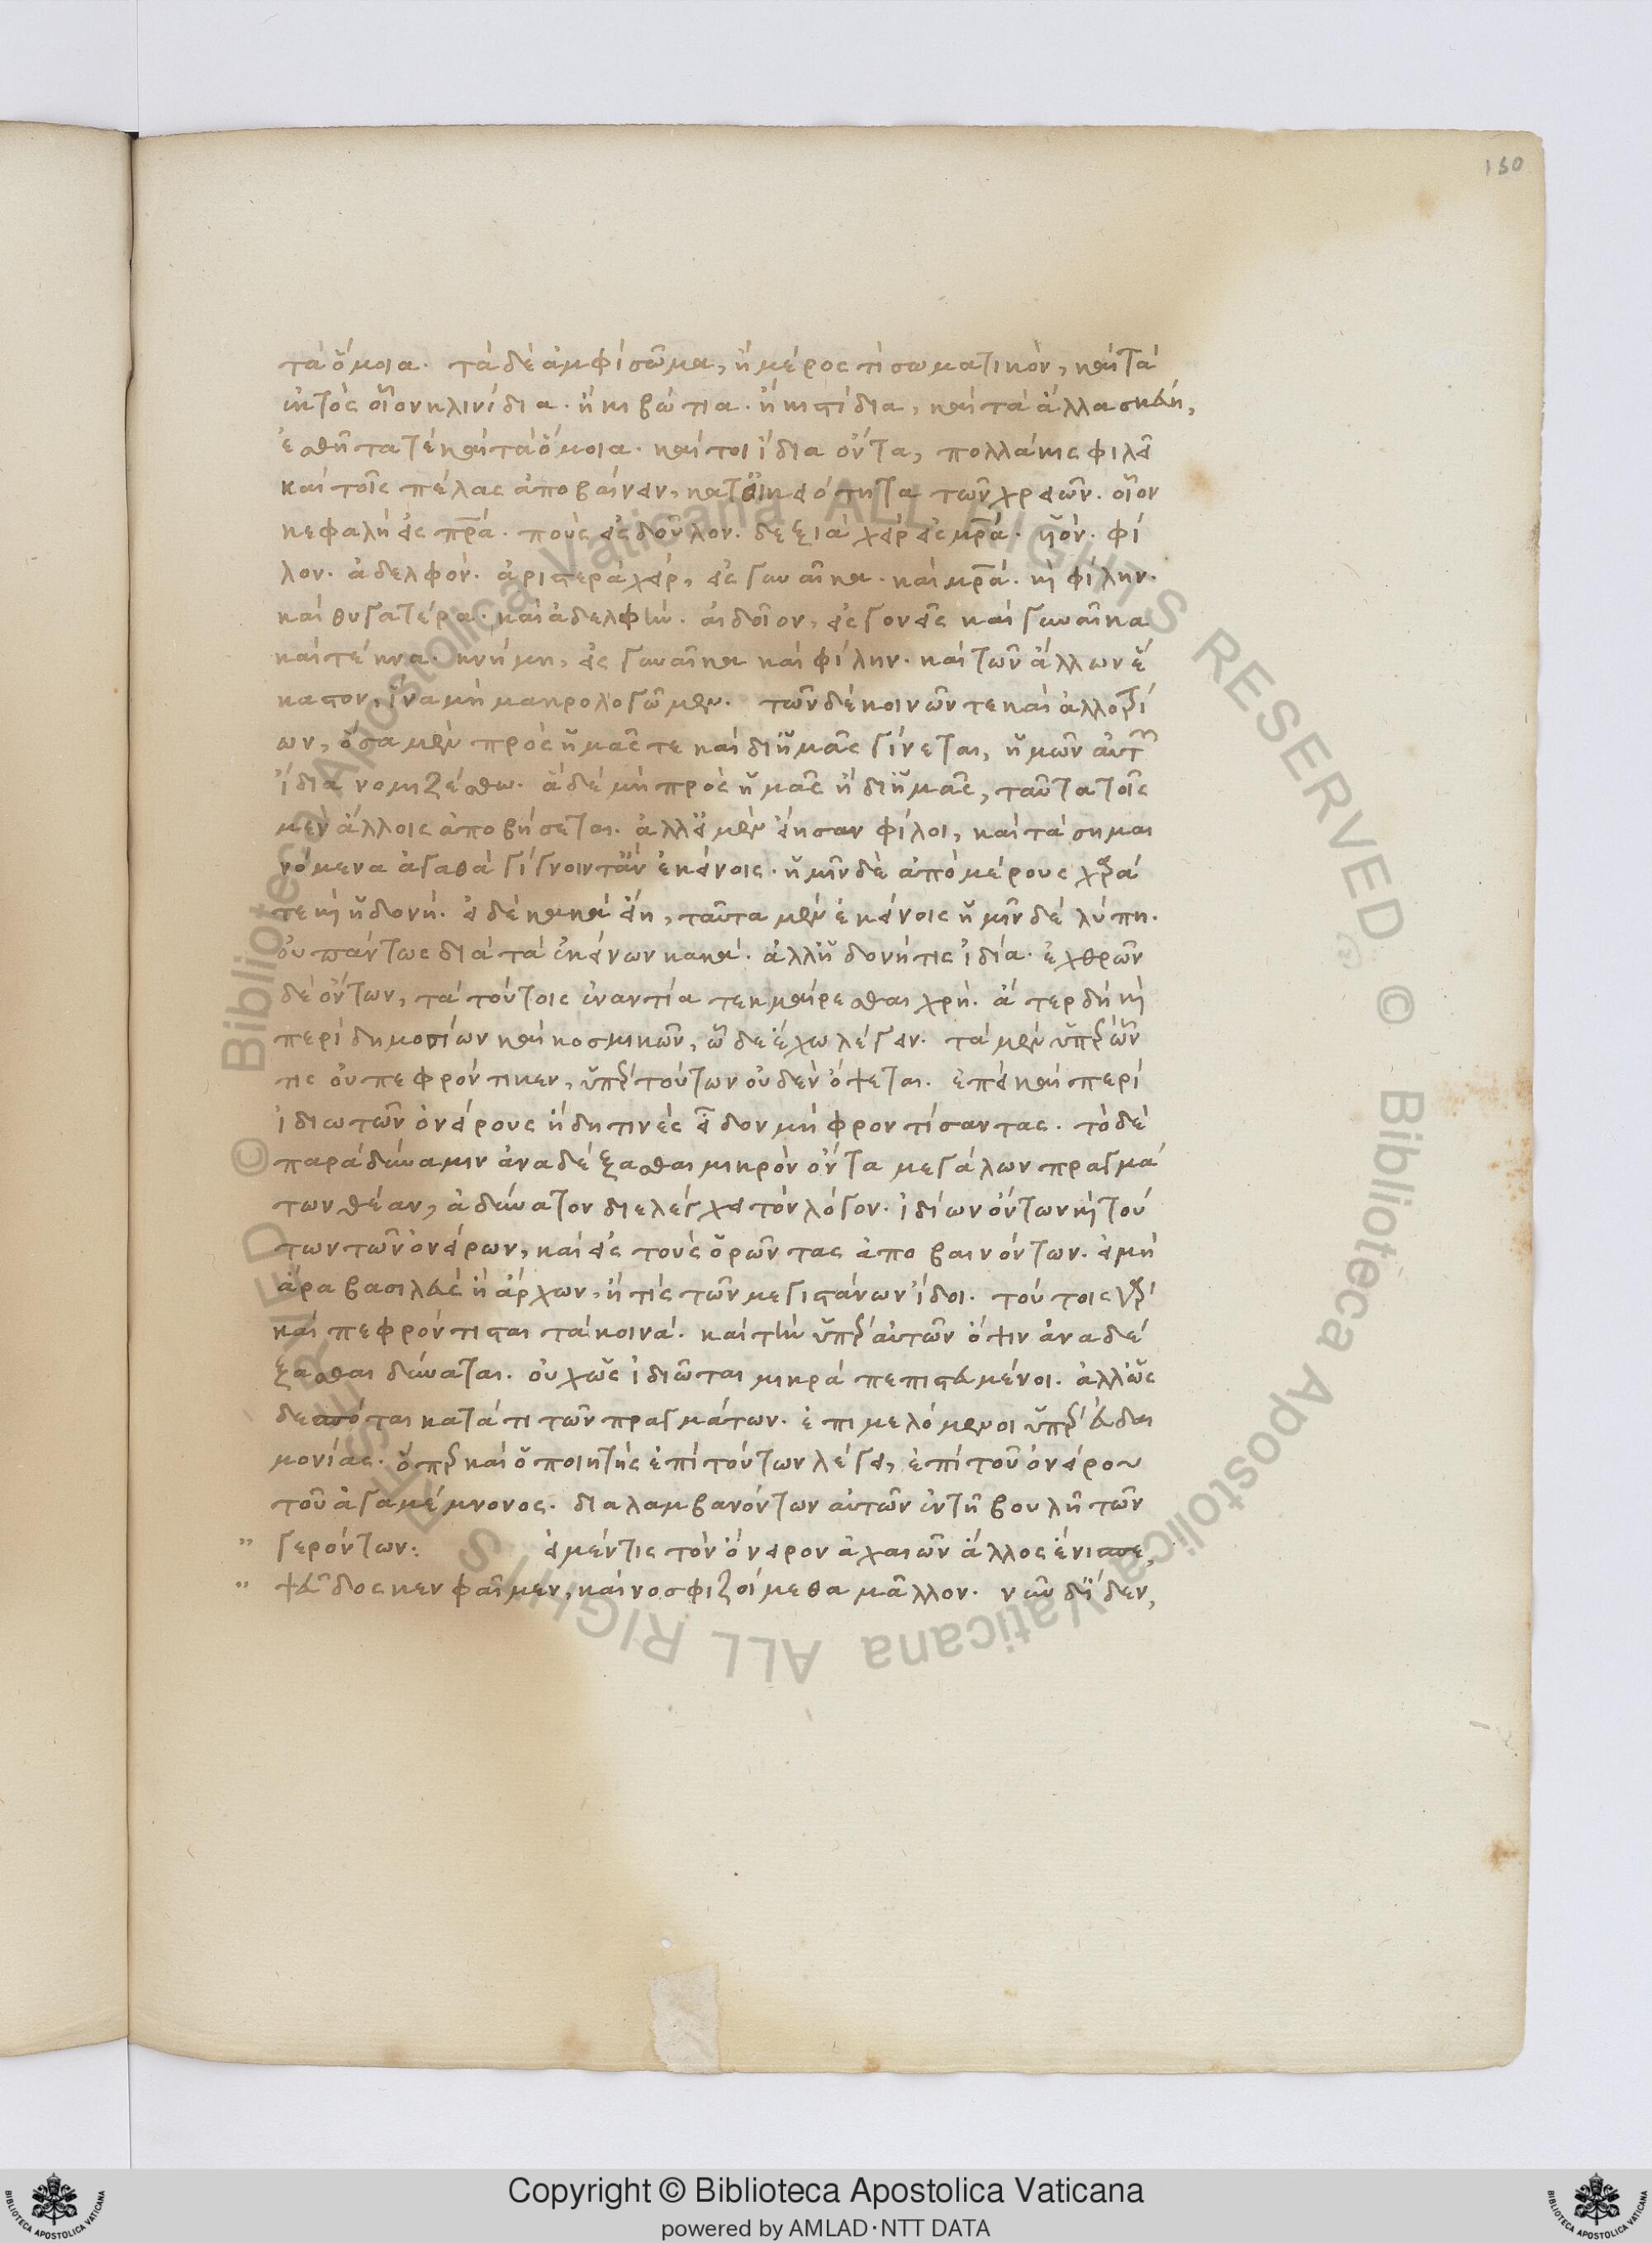 150
τὰ ὅμοια. τὰ δὲ ἀμφὶ σῶμα, ἢ μέρος τὶ σωματικὸν, καὶ τὰ
ἐκτὸς οἷον κλινίδια. ἢ κιβώτια. ἢ κιστίδια, καὶ τὰ ἄλλα σκεύη,
ἐσθῆτα τὲ καὶ τὰ ὅμοια. καίτοι ἴδια ὄντα, πολλάκις φιλεῖ
καὶ τοῖς πέλας ἀποβαίνειν, κατ οἰκειότητα τῶν χρειῶν. οἷον
κεφαλὴ εἰς πρ̅α. ποὺς εἰς δοῦλον. δεξιὰ χεὶρ εἰς μρ̅α. υἱὸν. φί
λον. ἀδελφὸν. ἀριστερὰ χεὶρ, εἰς γυναῖκα. καὶ μρ̅α. κ̀ φίλην.
καὶ θυγατέρα. καὶ ἀδελφὴν. αἰδοῖον, εἰς γονεῖς καὶ γυναῖκα
καὶ τέκνα. κνήμη, εἰς γυναῖκα καὶ φίλην. καὶ τῶν ἄλλων ἕ
καστον, ἵνα μὴ μακρολογῶμεν. τῶν δὲ κοινῶν τε καὶ ἀλλοτρί
ων, ὅσα μὲν πρὸς ἡμᾶς τε καὶ δι ἡμᾶς γίνεται, ἡμῶν αὐτῶν
ἴδια νομιζέσθω. ἃ δὲ μὴ πρὸς ἡμᾶς ἢ δι ἡμᾶς, ταῦτα τοῖς
μὲν ἄλλοις ἀποβήσεται. ἀλλ εἰ μὲν εἴησαν φίλοι, καὶ τὰ σημαι
νόμενα ἀγαθὰ γίγνοιντ ἂν ἐκείνοις. ἡμῖν δὲ ἀπὸ μέρους χαρά
τε κ̀ ἡδονή. εἰ δὲ κακὰ εἴη, ταῦτα μὲν ἐκείνοις ἡμῖν δὲ λύπη.
οὐ πάντως διὰ τὰ ἐκείνων κακά. ἀλλ ἡδονή τις ἰδία. ἐχθρῶν
δὲ ὄντων, τὰ τούτοις ἐναντία τεκμαίρεσθαι χρή. ἅ τερ δὴ κ̀
περὶ δημοσίων καὶ κοσμικῶν, ὧδε ἔχω λέγειν. τὰ μὲν ὑπὲρ ὧν
τις οὐ πεφρόντικεν, ὑπὲρ τούτων οὐδὲν ὄψεται. ἐπεὶ καὶ περὶ
ἰδιωτῶν ὀνείρους ἤδη τινὲς εἶδον μὴ φροντίσαντας. τὸ δὲ
παρὰ δύναμιν ἀναδέξασθαι μικρὸν ὄντα μεγάλων πραγμά
των θέαν, ἀδύνατον διελέγχει τὸν λόγον. ἰδίων ὄντων κ̀ τού
των τῶν ὀνείρων, καὶ εἰς τοὺς ὁρῶντας ἀποβαινόντων. εἰ μὴ
ἄρα βασιλεὺς ἢ ἄρχων, ἢ τὶς τῶν μεγιστάνων ἴδοι. τούτοις γὰρ
καὶ πεφρόντισται τὰ κοινά. καὶ τὴν ὑπὲρ αὐτῶν ὄψιν ἀναδέ
ξασθαι δύναται. οὐχ ὡς ἰδιῶται μικρὰ πεπιστευμένοι. ἀλλ ὡς
δεσπόται κατά τι τῶν πραγμάτων. ἐπιμελόμενοι ὑπὲρ εὐδαι
μονίας. ὅπερ καὶ ὁ ποιητὴς ἐπὶ τούτων λέγει, ἐπὶ τοῦ ὀνείρου
τοῦ ἀγαμέμνονος. διαλαμβανόντων αὐτῶν ἐν τῇ βουλῇ τῶν
" γερόντων: εἰ μέν τις τὸν ὄνειρον ἀχαιῶν ἄλλος ἔνισπε,
" ψεῦδος κεν φαῖμεν, καὶ νοσφιζοίμεθα μᾶλλον. νῦν δ ἴδεν,